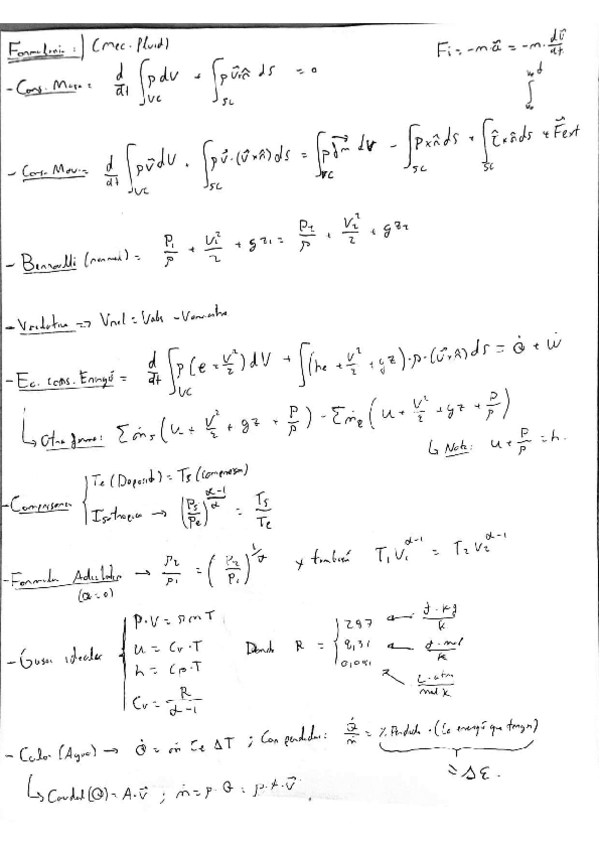 Formulario: | (Mec. Fluid)
Fi = -m·a⃗ = -m· dv⃗/dt
- Cons. Masa = d/dt ∫_VC ρ dV + ∫_SC ρ v⃗ n̂ ds = 0
- Cons. Mov. = d/dt ∫_VC ρ v⃗ dV + ∫_SC ρ v⃗·(v⃗×n̂) ds = ∫_VC ρ f⃗m dV - ∫_SC P×n̂ ds + ∫_SC τ̂×n̂ ds + F⃗ext
- Bernoulli (normal) = P₁/ρ + V₁²/2 + gz₁ = P₂/ρ + V₂²/2 + gz₂
=> Vrel = Vabs -
- Ec. cons. Energía = d/dt ∫_VC ρ (e + V²/2) dV + ∫ (he + V²/2 + gz)·ρ·(v⃗×n̂) ds = Q̇ + Ẇ
↳ Otra forma: Σṁs (u + V²/2 + gz + P/ρ) - Σṁe (u + V²/2 + gz + P/ρ)
↳ Nota: u + P/ρ = h.
- Compresores { Te (Deposito) = Ts (compresor)
Isotropico → (Ps/Pe)^((α-1)/α) = Ts/Te
- Formulas Adiabatica → ρ₂/ρ₁ = (P₂/P₁)^(1/α) y también T₁V₁^(α-1) = T₂V₂^(α-1)
(Q=0)
- Gases ideales { P·V = nRT
u = Cv·T
h = Cp·T
Cv = R/(α-1)
Donde R = { 287 ← J·kg/K
8,31 ← J·mol/K
L·atm/mol K
- Calor (Agua) → Q̇ = ṁ Ce ΔT ; Con perdidas: Q̇/ṁ = % Perdida · (la energía que tengas)
= ΔE.
↳ Caudal (Q) = A·v⃗ ; ṁ = ρ·Q = ρ·A·v⃗